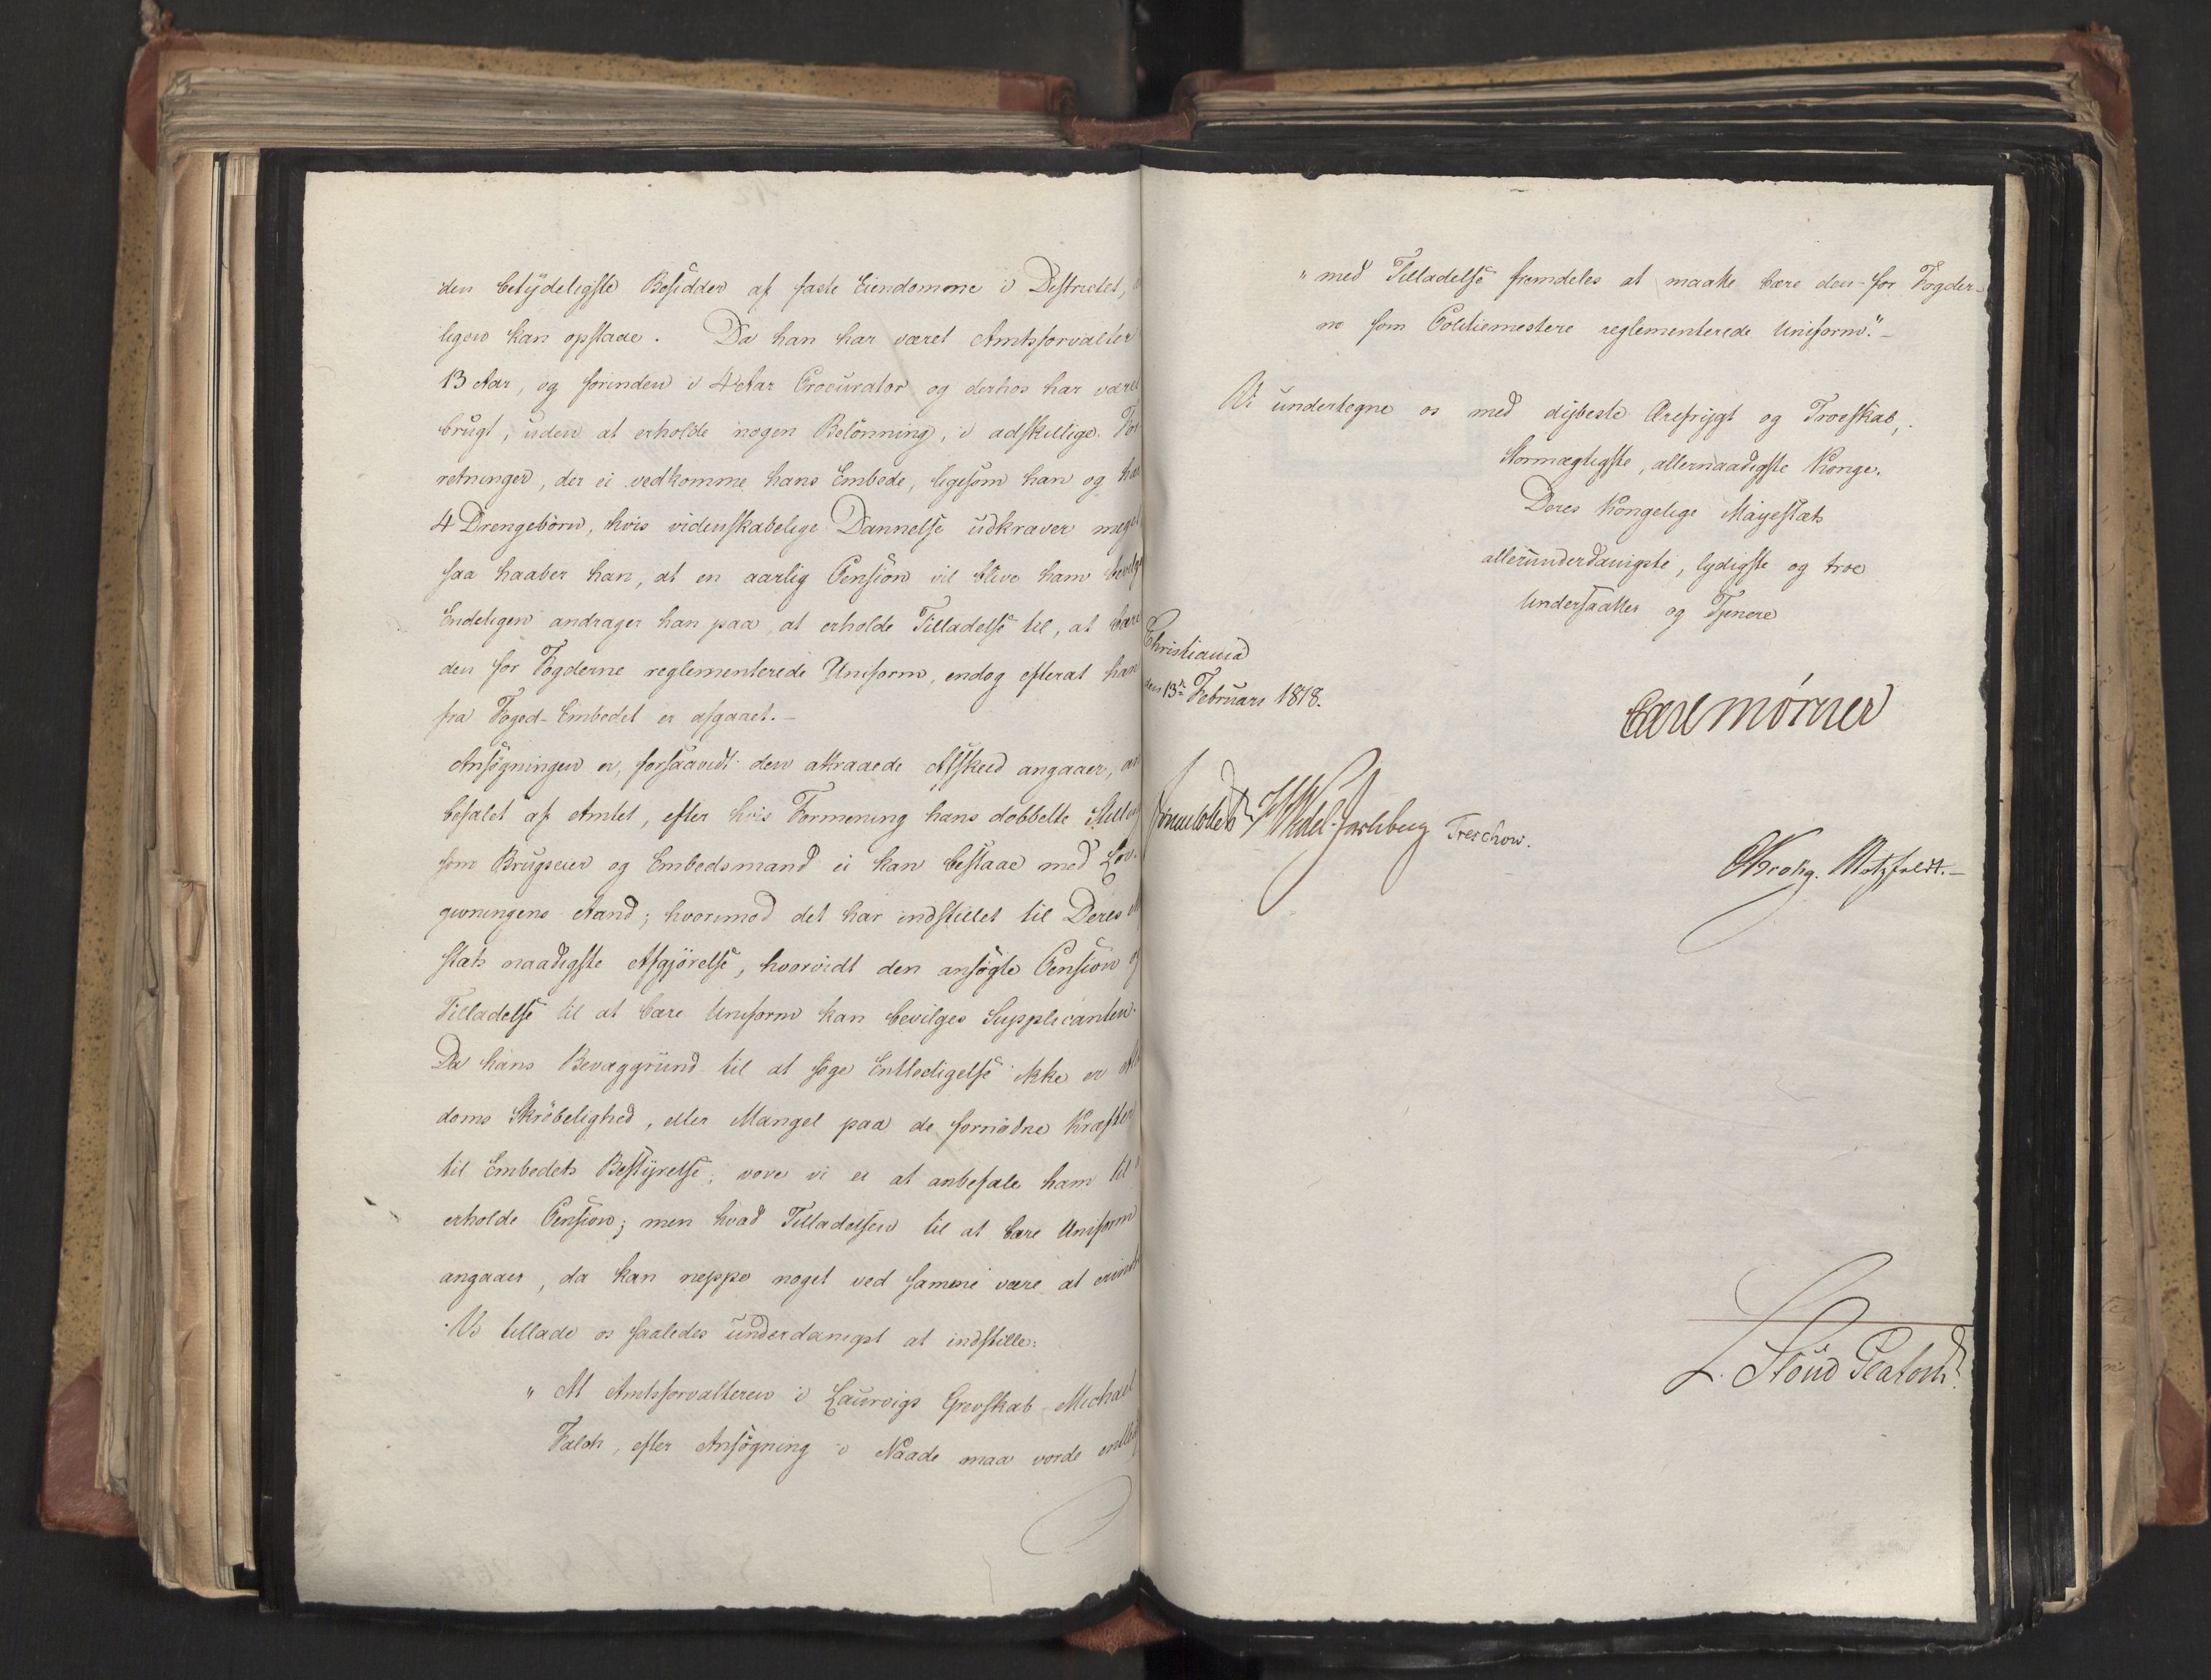 den betydeligste Besidder af faste Eiendomme i Districtet,
ligen kan opstaae. Da han har været Amtsforvalter
13 Aar, og forinden i 4 Aar Procurator og derhos har været
brugt, uden at erholde nogen Belønning, i adskillige For
retninger, der ei vedkomme hans Embede, ligesom han og har
4 Drengebørn, hvis videnskabelige Dannelse udkræver meget
saa haaber han, at en aarlig Pension vil blive ham bevilget
Endeligen andrager han paa, at erholde Tilladelse til, at bære
den for Fogderne reglementerede Uniform, endog efterat han
fra Foged-Embedet er afgaaet.-
Ansøgningen er, forsaavidt den attraaede Afskeed angaaer, an
befalet af Amtet, efter hvis Formening hans dobbelte Stilling
som Brugseier og Embedsmand ei kan bestaae med Lov-
givningens Aand; hvorimod det har indstillet til Deres
stæts naadigste Afgjørelse, hvorvidt den ansøgte Pension og
Tilladelse til at bære Uniform kan bevilges Supplicanten.
Da hans Bevæggrund til at søge Entledigelse ikke er
doms Skrøbelighed, eller Mangel paa de fornødne Kræfter
til Embedets Bestyrelse, vove vi ei at anbefale ham til
erholde Pension; men hvad Tilladelsen til at bære Uniform
angaaer, da kan neppe noget ved samme være at erindre
Vi tillade os saaledes underdanigst at indstille:
" At Amtsforvalteren i Laurvigs Grevskab Michael
Falch, efter Ansøgning i Naade maa vorde entledig
" med Tilladelse fremdeles at maatte bære den for Fogder-
ne som Politiemestere reglementerede Uniform."-
Vi undertegne os med dybeste Ærefrygt og Troeskab,
Stormægtigste, allernaadigste Konge.
Deres Kongelige Mayestæts
allerunderdanigste, lydigste og troe
Undersaatter og Tjenere
Christiania
den 13de Februar 1818.
Carl Mörner
Sommerhielm Wedel-Jarlsberg Treschow.
CKrohg. Motzfeldt.-
L. Stoud Platou